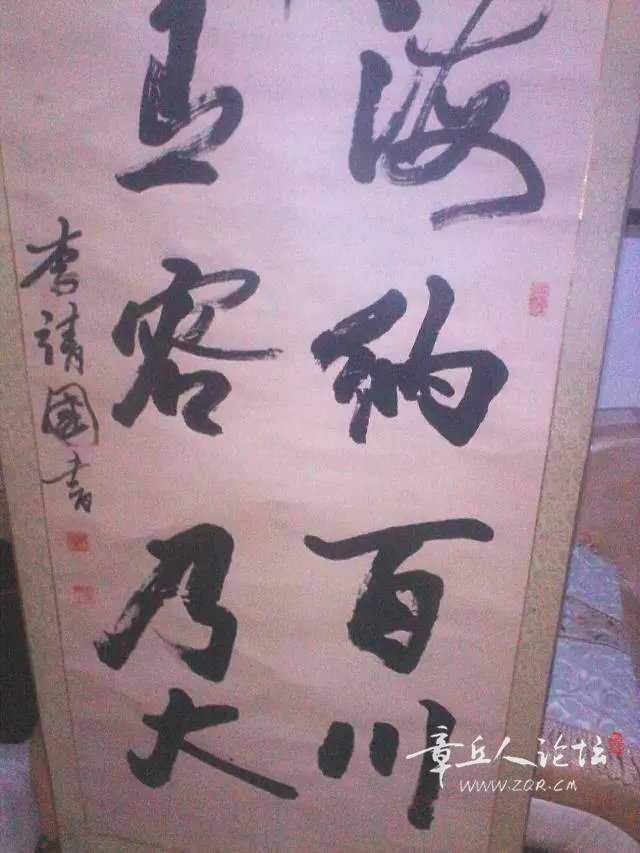 海纳百川
有容乃大
李靖國书
章丘人论坛
WWW.ZQR.CM